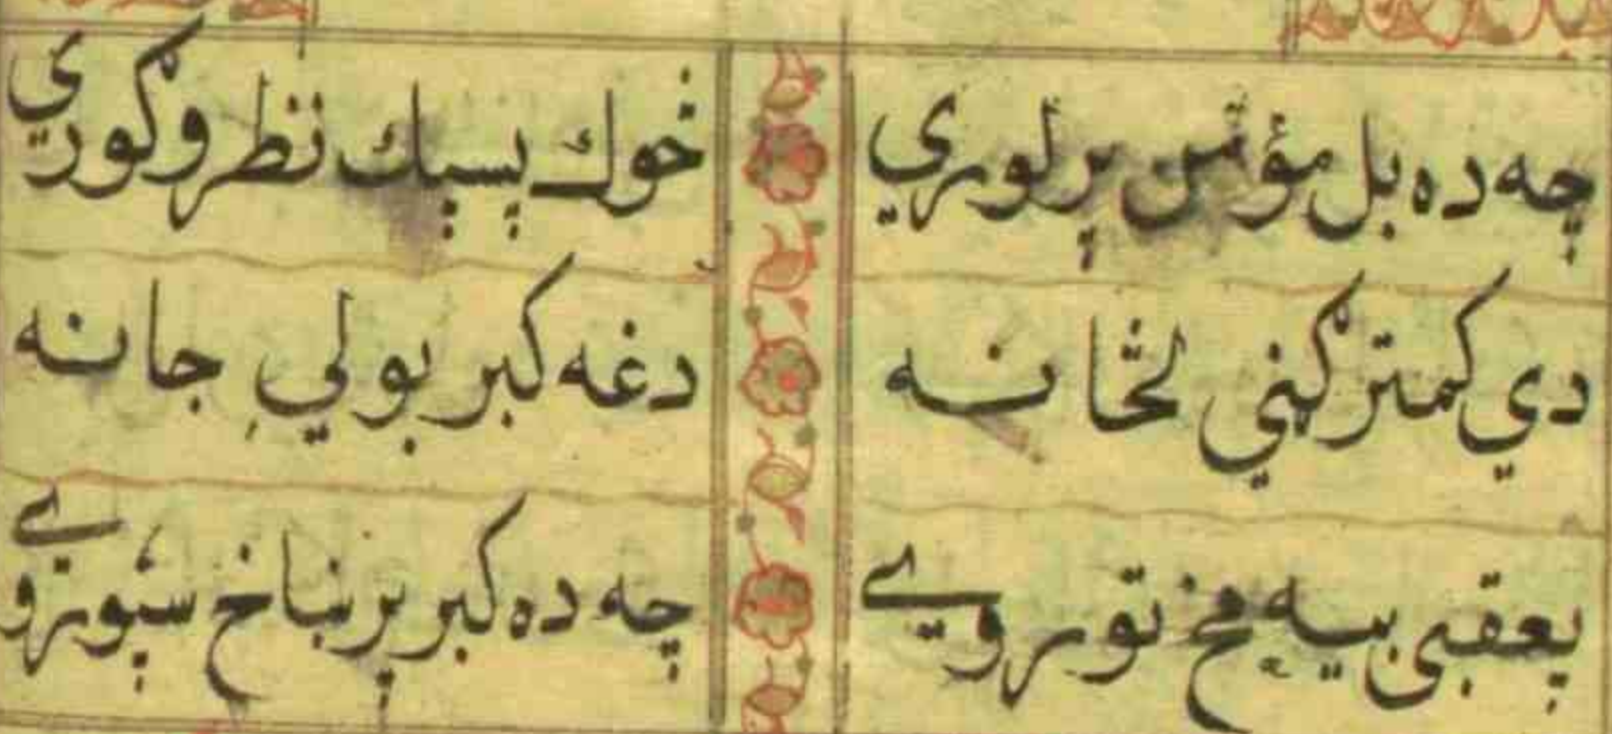 چه ده بل مؤمن پر لوري
څوك پسپك نظر وګوري
دي كمتر ګڼي لځانه
دغه كبر بولي جانه
پعقبی به یې مخ تور وي
چه ده كبر پر ښاخ سپور وي